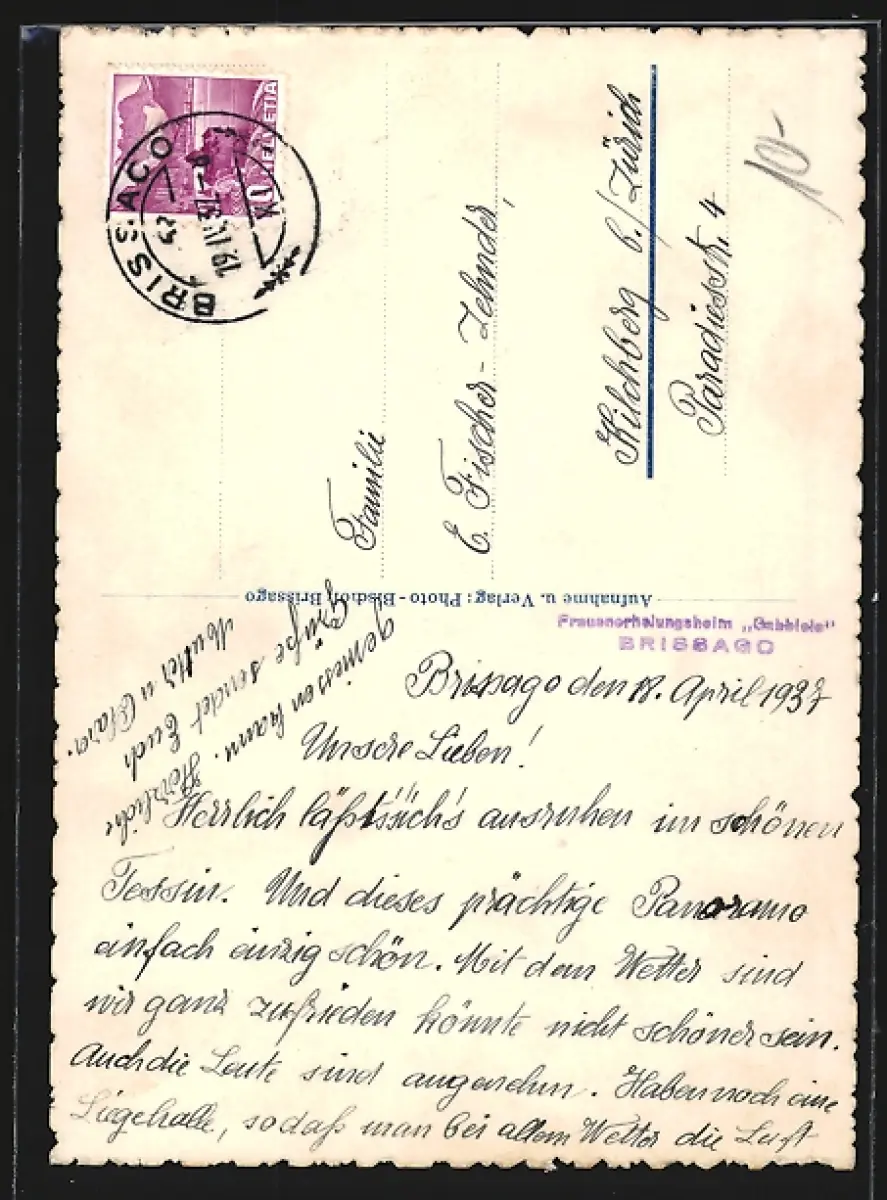 HELVETIA
10
BRISSAGO
19.IV.37
10-
Familie
E. Fischer-Zehnder,
Kilchberg b./Zürich
Paradiesstr. 4
Aufnahme u. Verlag: Photo-Bischoff, Brissago
Frauenerholungsheim „Gabbiola"
BRISSAGO
Brissago den 18. April 1937
Unsere Lieben!
Herrlich läßt sich's ausruhen im schönen
Tessin. Und dieses prächtige Panorama
einfach einzig schön. Mit dem Wetter sind
wir ganz zufrieden könnte nicht schöner sein.
Auch die Leute sind angenehm. Haben noch eine
Liegehalle, sodaß man bei allem Wetter die Luft
geniessen kann. Herzliche
Grüße sendet Euch
Mutter u Clara.